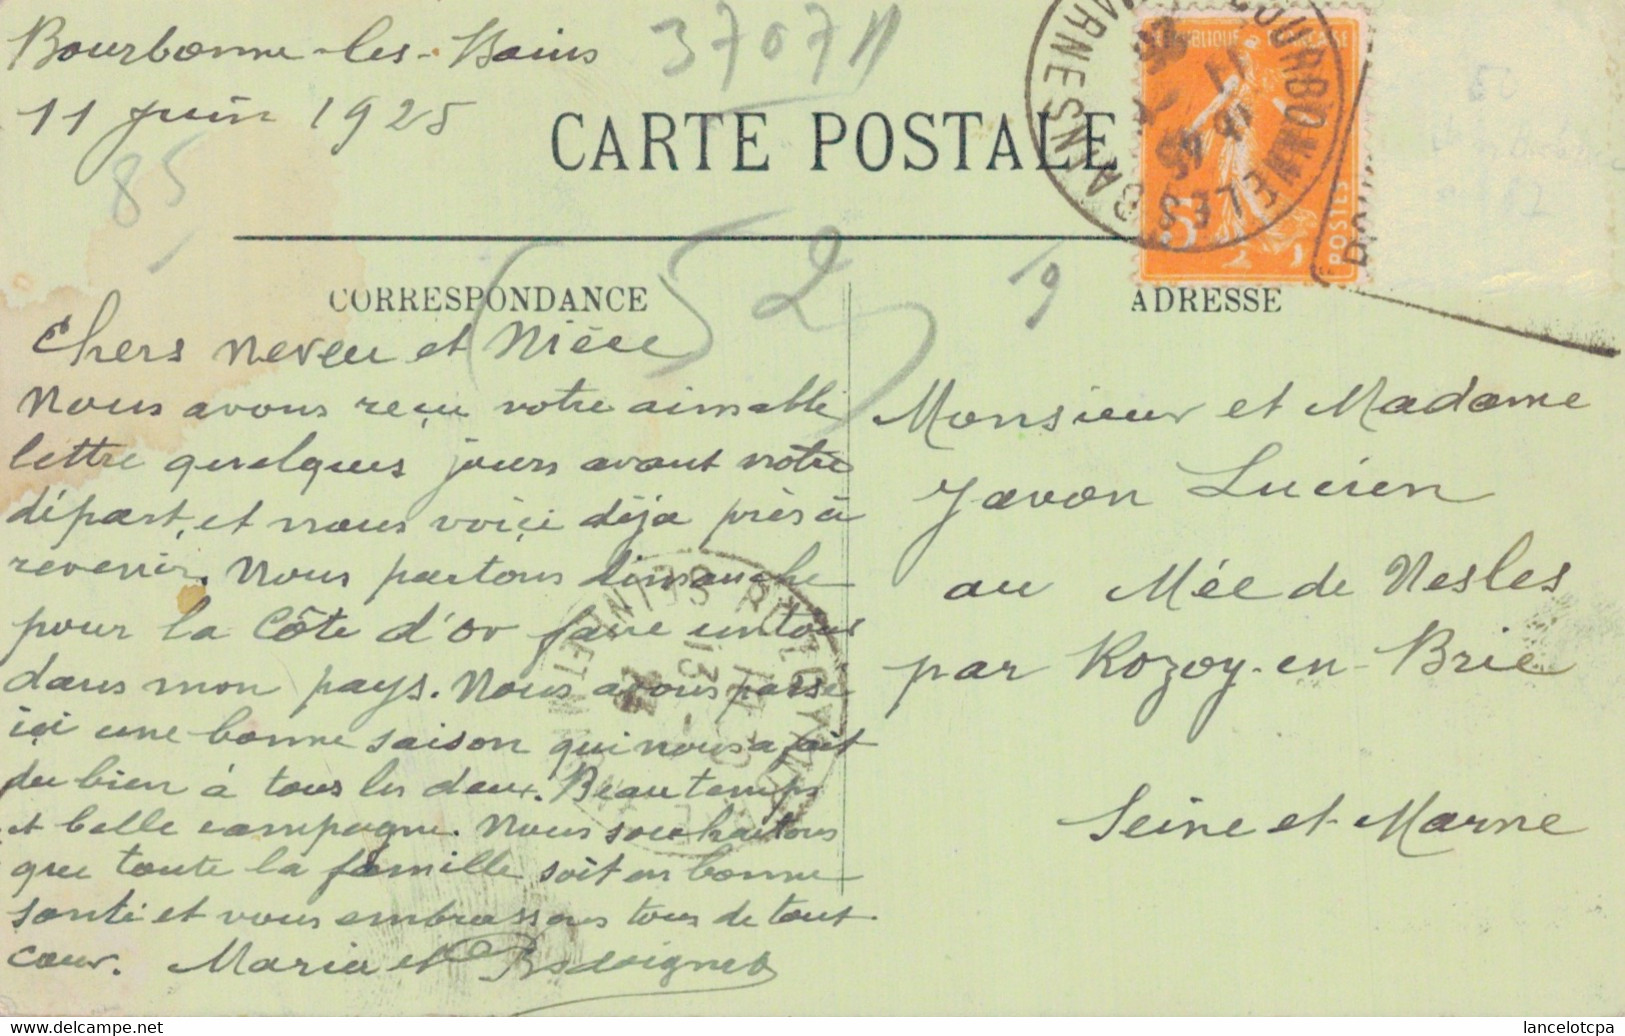 Bourbonne-les-Bains
11 juin 1925
37071
85
52
19
CARTE POSTALE
REPUBLIQUE FRANÇAISE
POSTES
BOURBONNE LES BAINS
CORRESPONDANCE
Chers neveu et nièce
nous avons reçu votre aimable
lettre quelques jours avant notre
départ, et nous voiçi déja près à
revenir. Nous partons dimanche
pour la Côte d'or faire un tour
dans mon pays. Nous avons passé
içi une bonne saison qui nous a fait
du bien à tous les deux. Beau temps
et belle campagne. Nous souhaitons
que toute la famille soit en bonne
santé et vous embrassons tous de tout
cœur. Maria et
ADRESSE
Monsieur et Madame
Javon Lucien
au Mée de Nesles
par Rozoy-en-Brie
Seine-et-Marne
lancelotcpa
www.delcampe.net